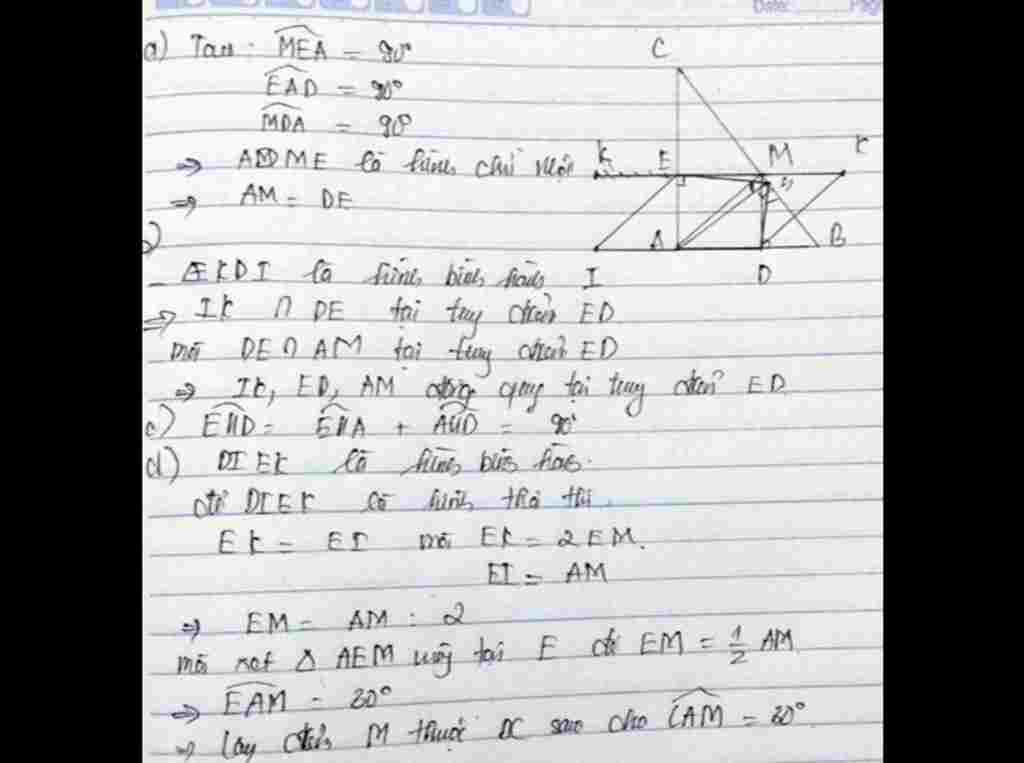 a) Ta có: MEA = 90°
EAD = 90°
MDA = 90°
⇒ ADME là hình chữ nhật
⇒ AM = DE
b)
- EKDI là hình bình hành
⇒ IK ∩ DE tại trung điểm ED
mà DE ∩ AM tại trung điểm ED
⇒ IK, ED, AM đồng quy tại trung điểm ED
c) EHD = EHA + AHD = 90°
d) DIEK là hình bình hành.
để DIEK là hình thoi thì
EK = EI mà EK = 2EM.
EI = AM
⇒ EM = AM : 2
mà xét Δ AEM vuông tại E có EM = 1/2 AM
⇒ EAM = 30°
⇒ Lấy điểm M thuộc BC sao cho CAM = 30°
C
K E M K
A B
I D
Date: Page